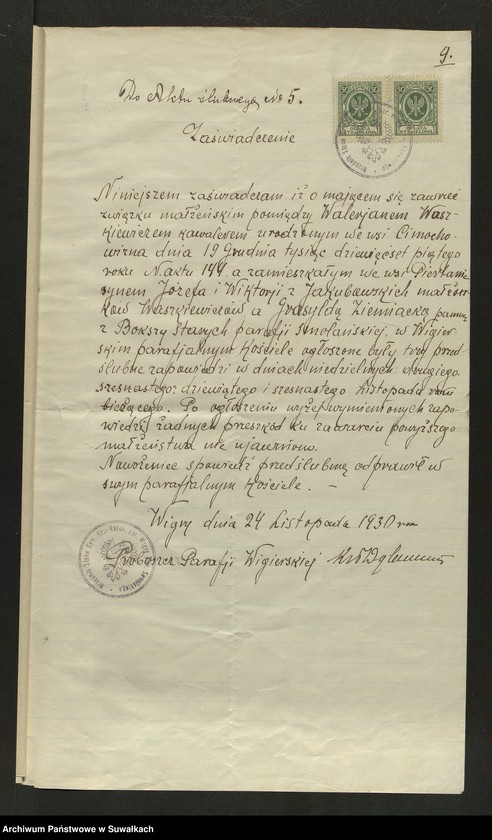 9.
Do Aktu ślubnego № 5.
Zaświadczenie
Niniejszem zaświadczam iż o mającem się zawrzeć
związku małżeńskim pomiędzy Walerjanem Wasz-
kiewiczem kawalerem urodzonym we wsi Cimocho-
wizna dnia 19 Grudnia tysiąc dziewięćset piątego
roku N. aktu 144 a zamieszkałym we wsi Piertanie
synem Józefa i Wiktorji z Jakubowskich małżon-
ków Waszkiewiczów a Grasyldą Ziemiacką panną
z Bokszy Starych parafji Smolańskiej, w Wigier-
skim parafjalnym Kościele ogłoszone były trzy przed-
ślubne zapowiedzi w dniach niedzielnych: drugiego
dziewiątego i szesnastego Listopada roku
bieżącego. Po ogłoszeniu wyżejwymienionych zapo-
wiedzi żadnych przeszkód ku zawarciu powyższego
małżeństwa nie ujawniono.
Nowożeniec spowiedź przedślubną odprawił w
swym parafjalnym Kościele. —
Wigry dnia 24 Listopada 1930 roku
Proboszcz Parafji Wigierskiej
Archiwum Państwowe w Suwałkach